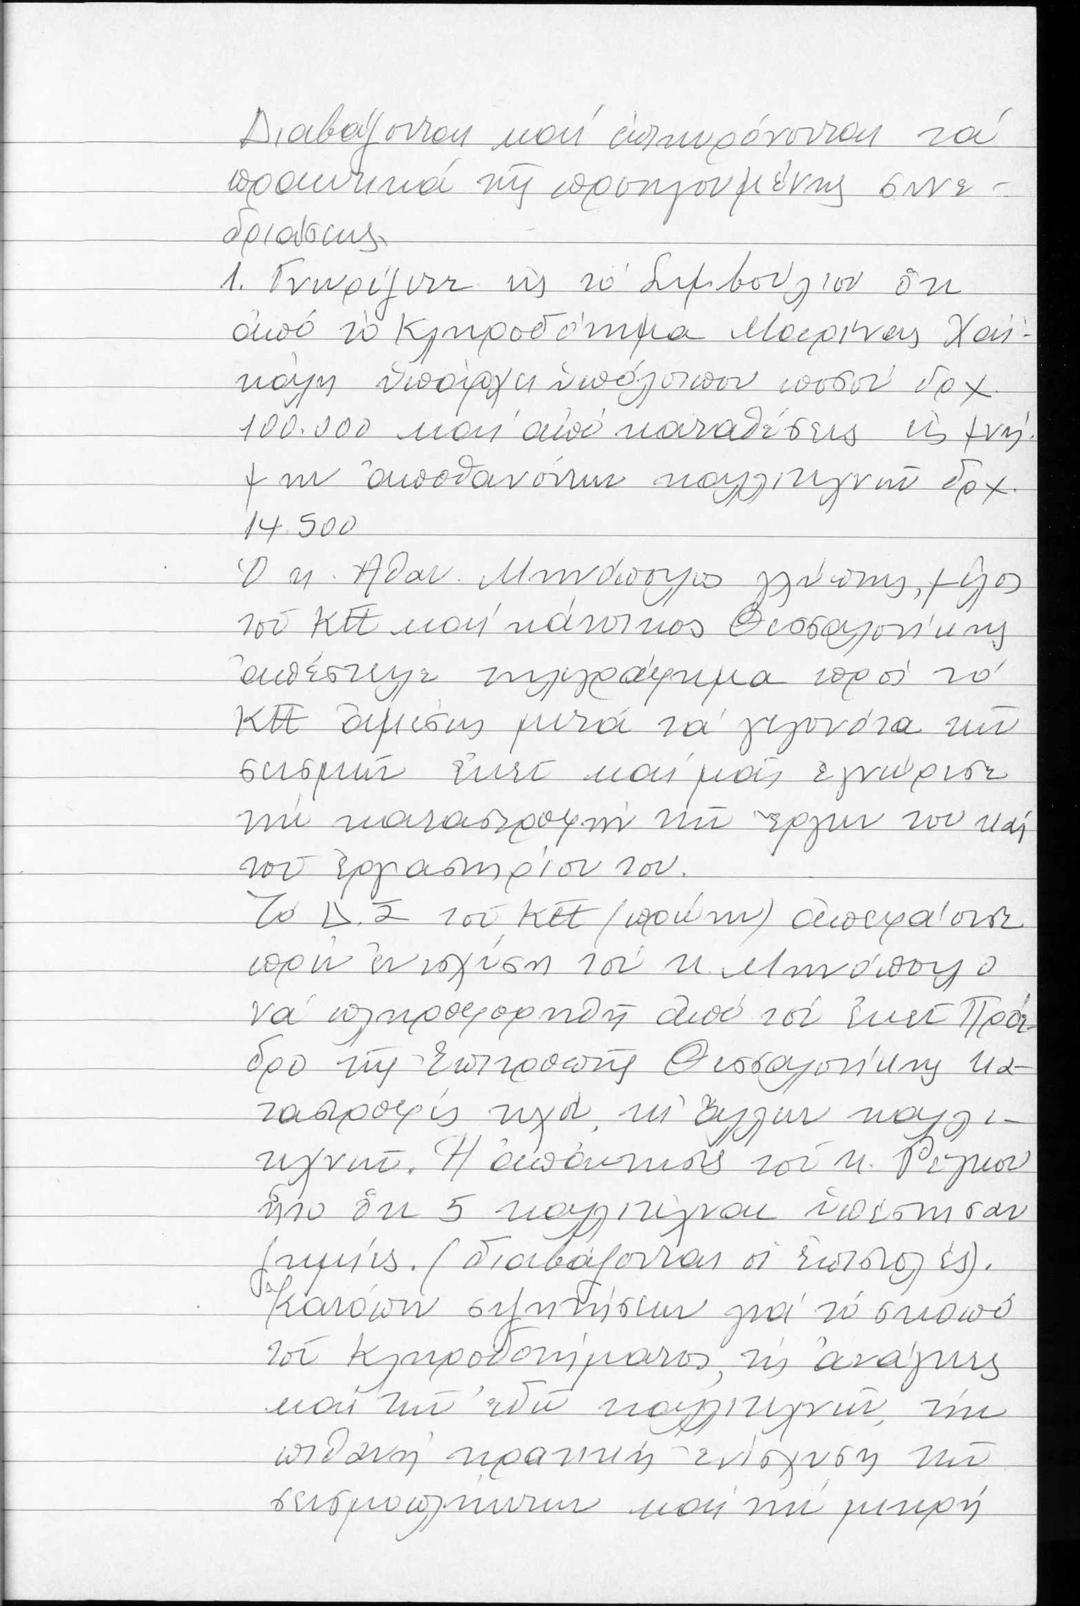 Διαβάζονται καί ἐπικυρώνονται τά
πρακτικά τῆς προηγουμένης συνε-
δριάσεως.
1. Γνωρίζεται εἰς τό Συμβούλιον ὅτι
ἀπό τό Κληροδότημα Μαρίνας Χατ-
κάλη ὑπάρχει ὑπόλοιπον ποσόν δρχ.
100.000 καί ἀπό καταθέσεις εἰς μνή-
μην ἀποθανόντων καλλιτεχνῶν δρχ.
14.500
Ὁ κ. Αθαν. Μηνόπουλος γλύπτης, μέλος
τοῦ ΚΕΕ καί κάτοικος Θεσσαλονίκης
ἀπέστειλε τηλεγράφημα πρός τό
ΚΕΕ ἀμέσως μετά τά γεγονότα τῶν
σεισμῶν ἐκεῖ καί μᾶς ἐγνώρισε
τήν καταστροφήν τῶν ἔργων του καί
τοῦ ἐργαστηρίου του.
Τό Δ.Σ τοῦ ΚΕΕ (πρώην) ἀπεφάσισε
πρίν ἐνισχύση τόν κ. Μηνόπουλο
νά πληροφορηθῆ ἀπό τόν ἐκεῖ Πρόε-
δρο τῆς Ἐπιτροπῆς Θεσσαλονίκης κα-
ταστροφές τυχόν, καί ἄλλων καλλι-
τεχνῶν. Ἡ ἀπάντησις τοῦ κ. Ρέγκου
ἦτο ὅτι 5 καλλιτέχναι ὑπέστησαν
ζημιές. (διαβάζονται οἱ ἐπιστολές).
Κατόπιν συζητήσεων γιά τό σκοπό
τοῦ Κληροδοτήματος, τίς ἀνάγκες
καί τῶν ἐδῶ καλλιτεχνῶν, τήν
πιθανή κρατική ἐνίσχυση τῶν
σεισμοπλήκτων καί τήν μικρή